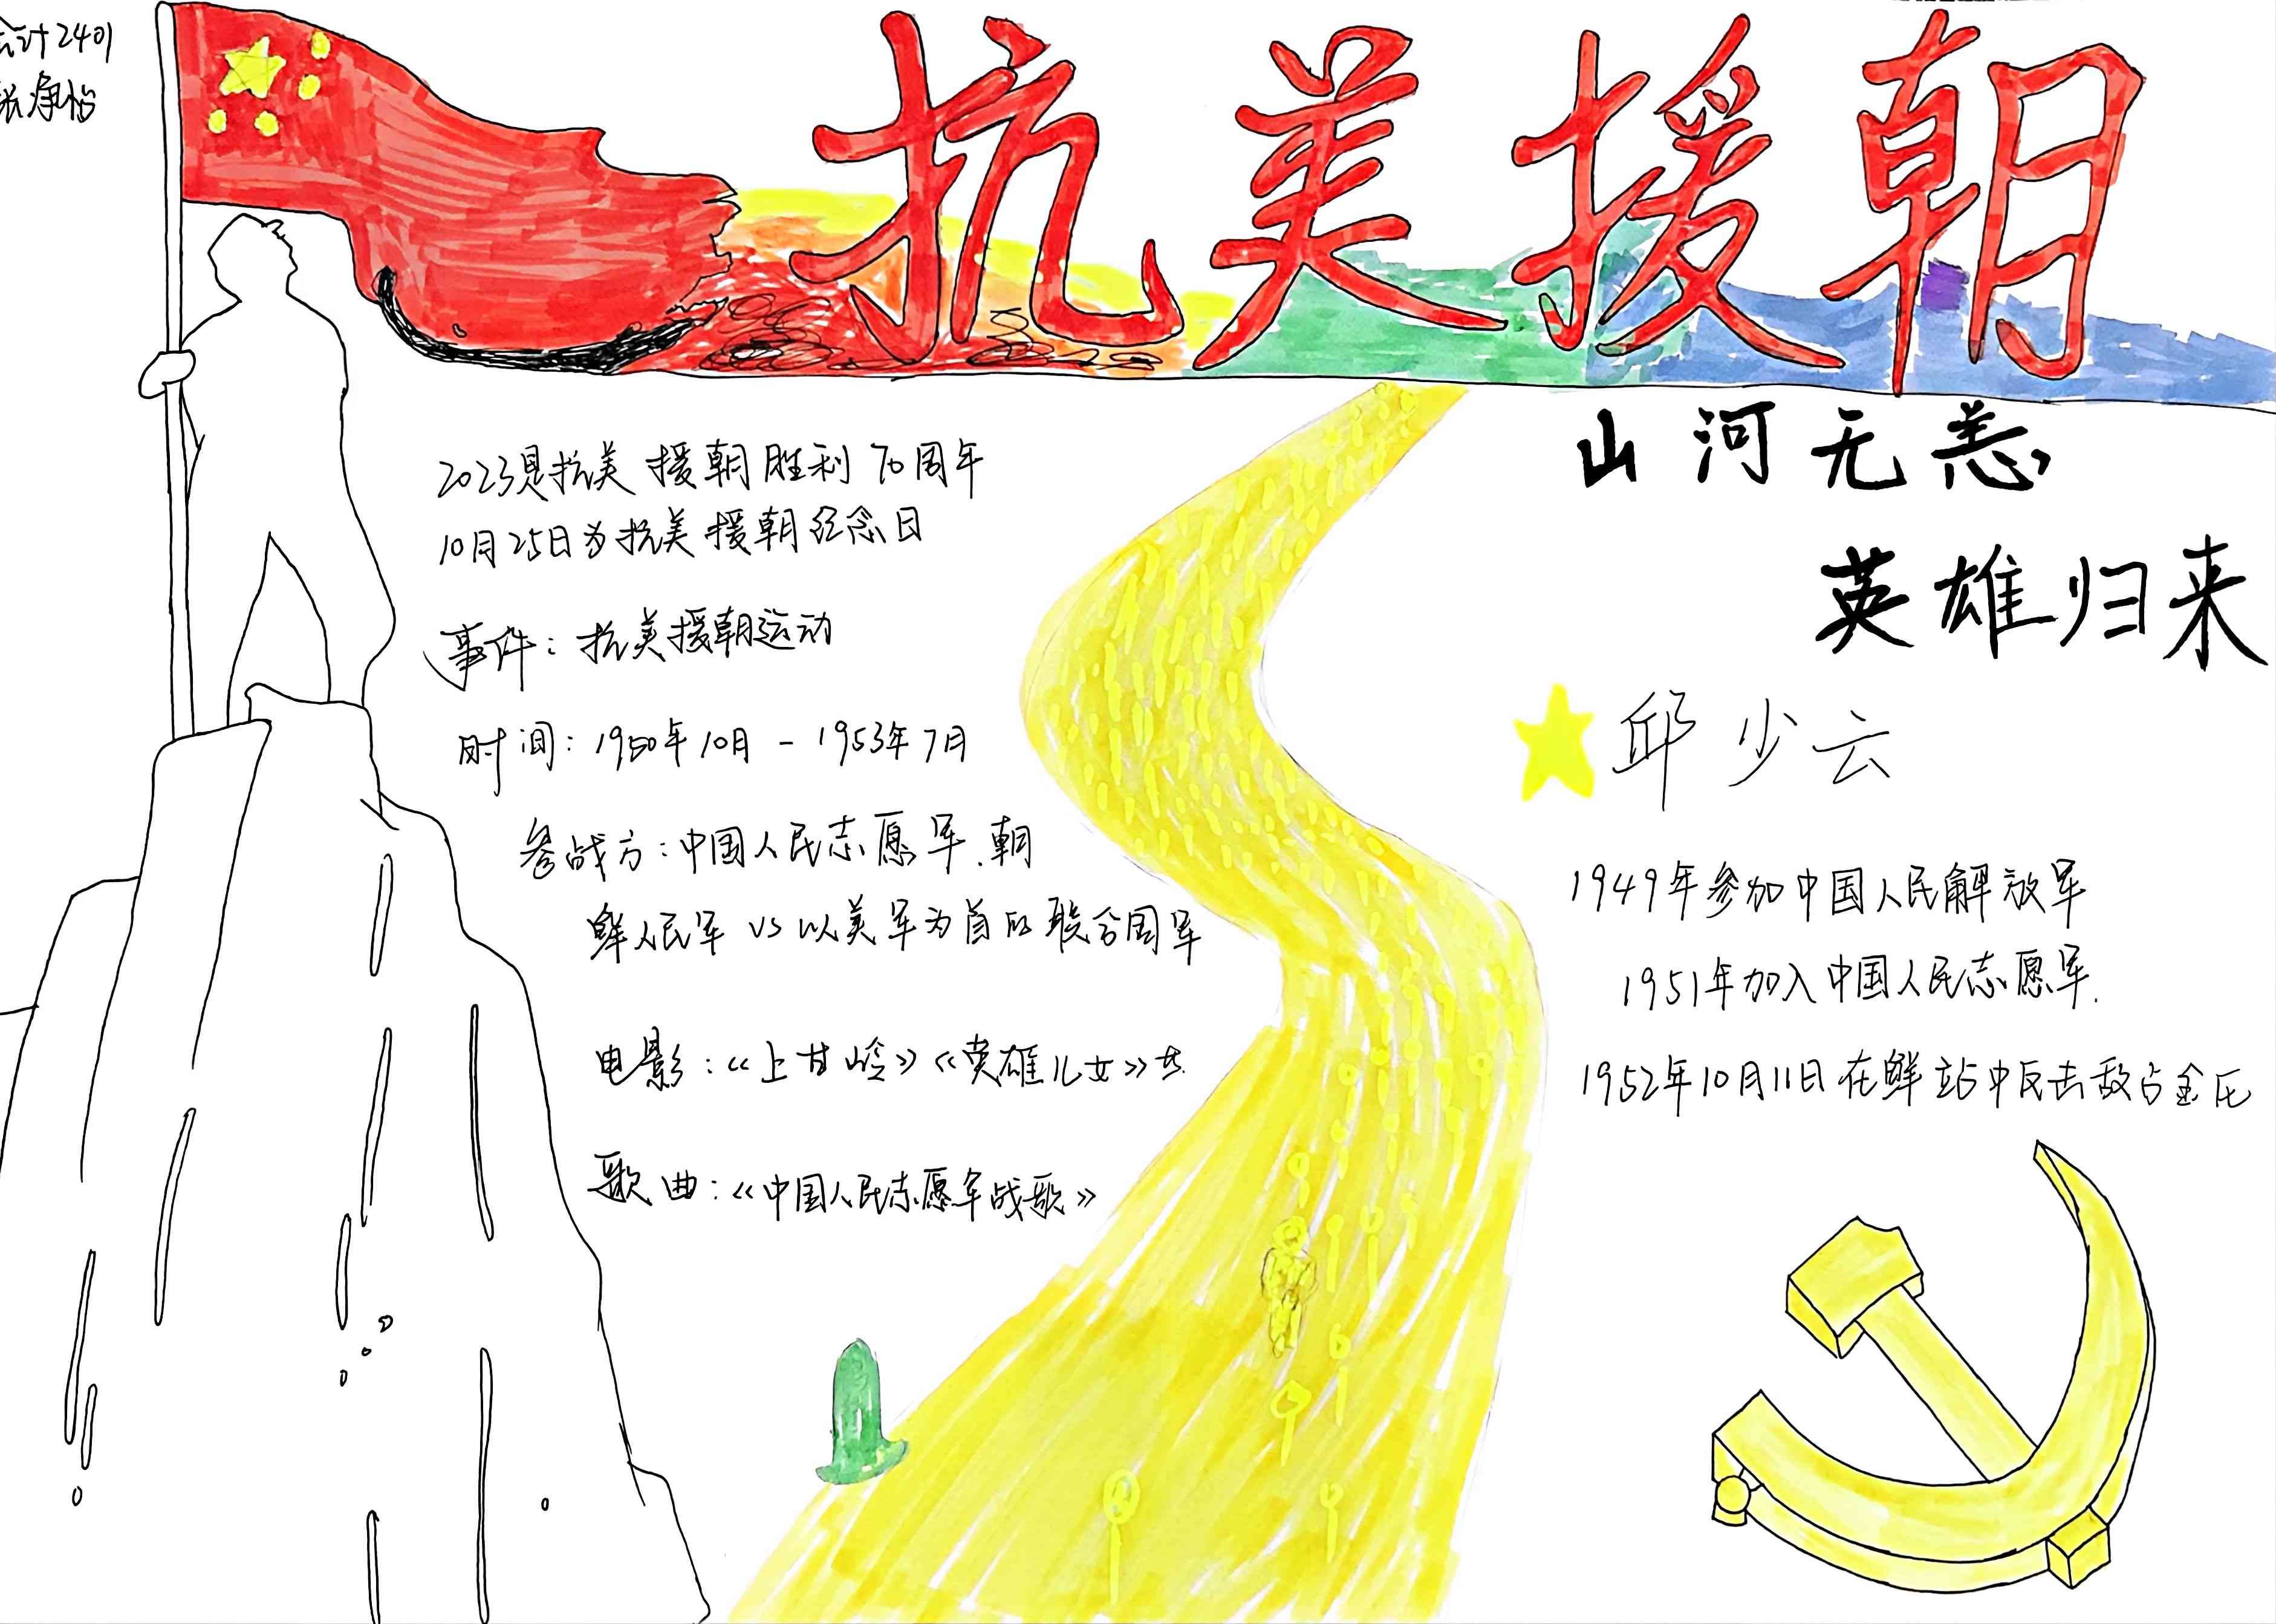 会计2401
抗美援朝
山河无恙，
英雄归来
2023是抗美援朝胜利70周年
10月25日为抗美援朝纪念日
事件：抗美援朝运动
时间：1950年10月－1953年7月
参战方：中国人民志愿军、朝
鲜人民军 VS 以美军为首的联合国军
电影：《上甘岭》《英雄儿女》
歌曲：《中国人民志愿军战歌》
邱少云
1949年参加中国人民解放军
1951年加入中国人民志愿军.
1952年10月11日在 中反击敌占金